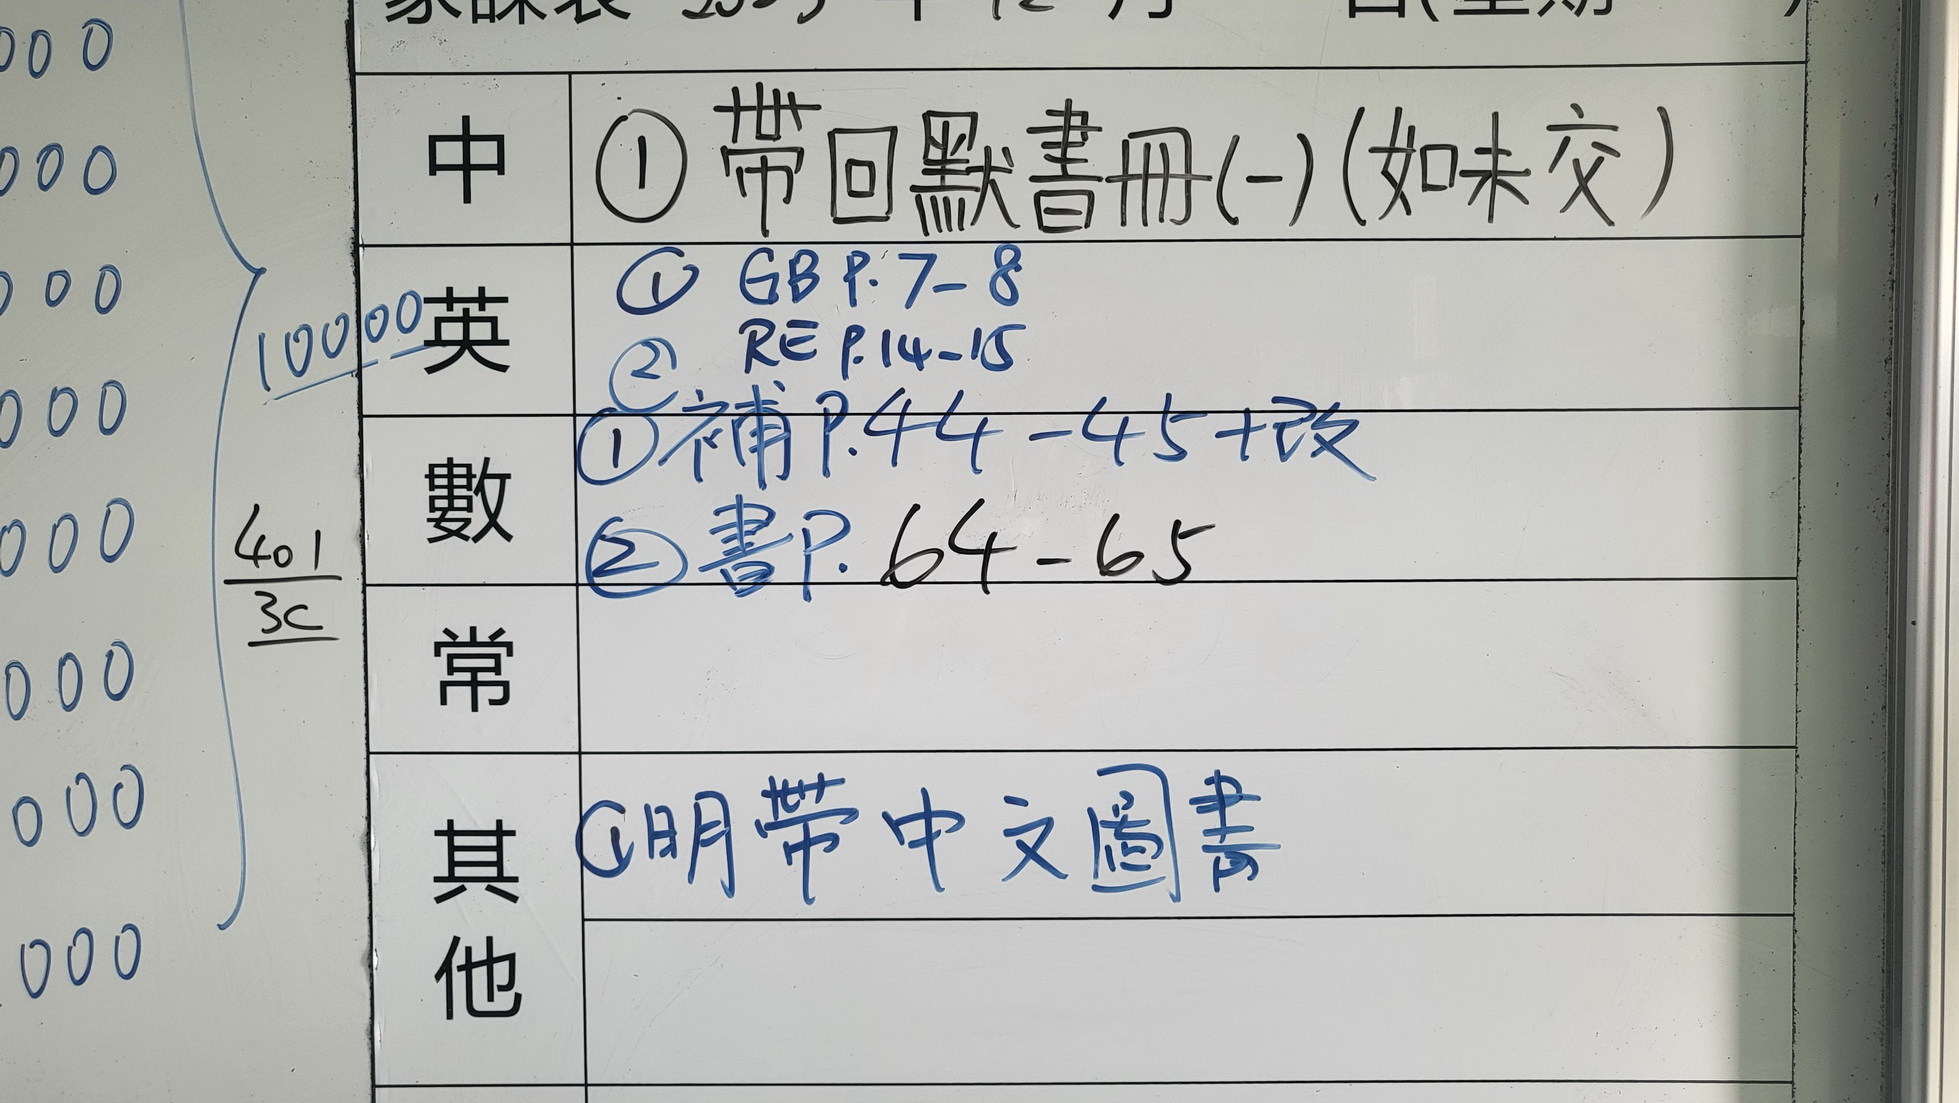 家課表 2025 年 12 月 日(星期 )
中
① 帶回默書冊(一)(如未交)
英
① GB P. 7-8
② RE P. 14-15
數
① 補 P. 44-45+改
② 書 P. 64-65
常
其他
① 明帶中文圖書
000
000
000
000
000
000
000
000
10000
401
3C